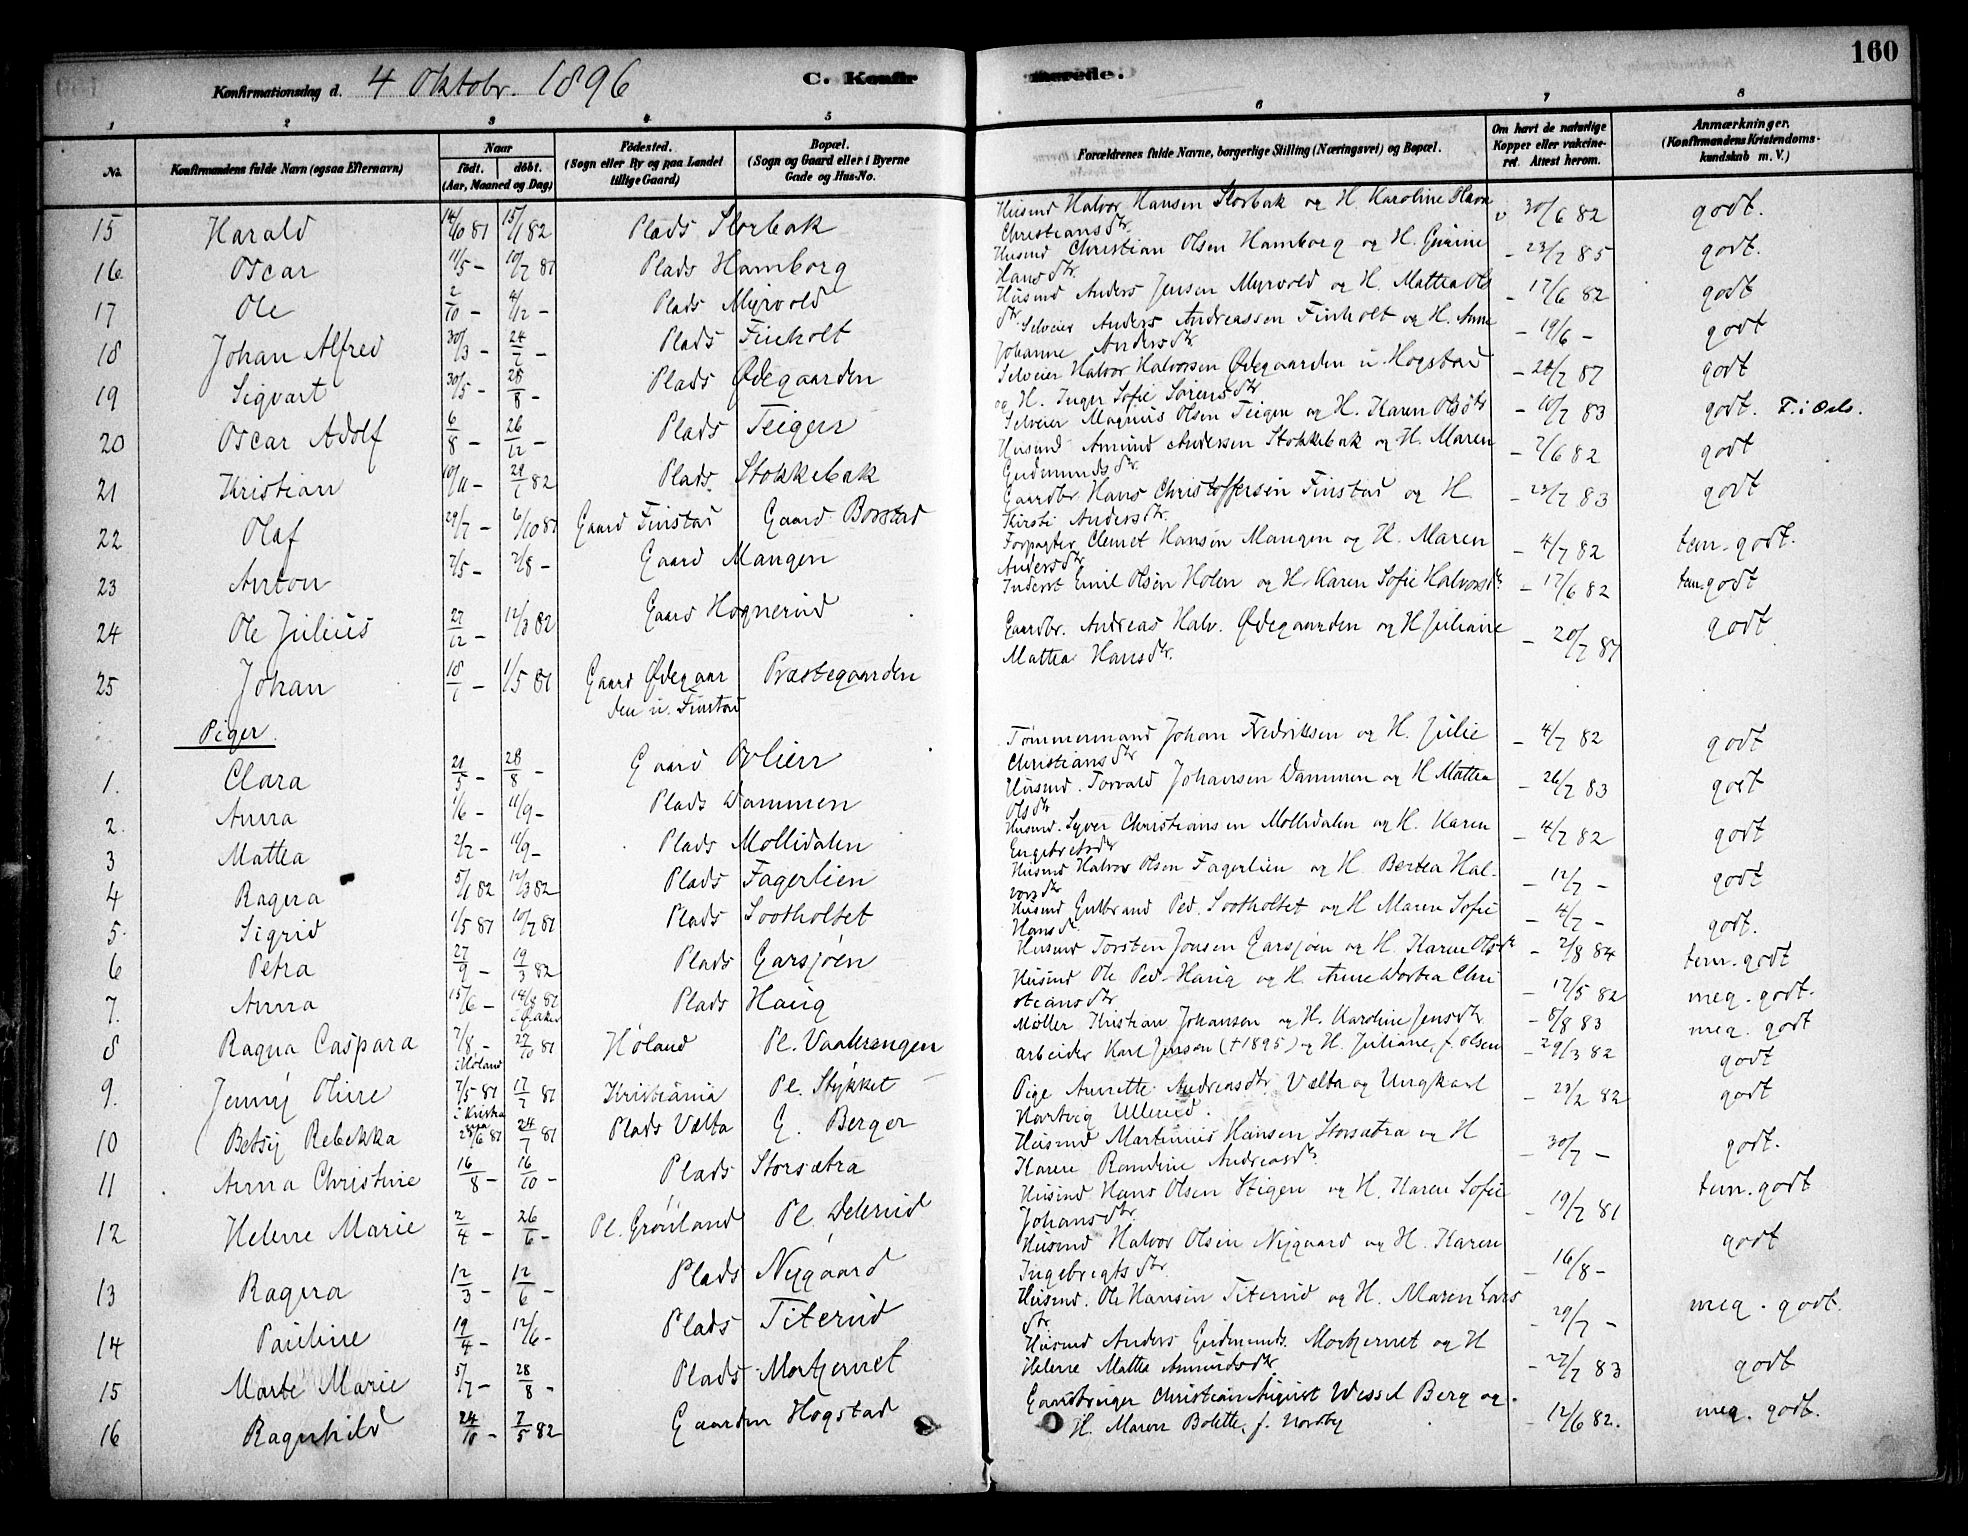 160
Konfirmationsdag d. 4 Oktobr. 1896 C. Konfirmerede.
1 2 3 4 5 6 7 8
No. Konfirmandens fulde Navn (ogsaa Efternavn) Naar født. døbt. (Aar, Maaned og Dag) Fødested. (Sogn eller By og paa Landet tillige Gaard) Bopæl. (Sogn og Gaard eller i Byerne Gade og Hus-No. Forældrenes fulde Navne, borgerlige Stilling (Næringsvei) og Bopæl. Om havt de naturlige Kopper eller vakcineret. Attest herom. Anmærkninger. (Konfirmandens Kristendomskundskab m. V.)
15 Harald 14/10 81 15/1 82 Plads Storbak Husmd Halvor Hansen Storbak og H. Karoline Christiansdtr. 30/6 82 godt.
16 Oscar 11/5 – 10/7 81 Plads Hamborg Husmd Christian Olsen Hamborg og H. Gurine Hansdtr. – 23/7 85 godt.
17 Ole 2/10 – 4/12 – Plads Myrvold Husmd Anders Jensen Myrvold og H. Mattea Olsdtr. – 17/6 82 godt
18 Johan Alfred 30/3 – 24/7 – Plads Finholt Selveier Anders Andreassen Finholt og H. Anne Johanne Andersdtr – 19/6 – godt
19 Sigvart 30/5 – 28/8 – Plads Ødegaarden Selveier Halvor Halvorsen Ødegaarden u. Hogstad og H. Inger Sofie Sørensdtr – 28/7 87 godt
20 Oscar Adolf 6/8 – 26/12 – Plads Teigen Selveier Magnus Olsen Teigen og H. Karen Olsdtr – 10/7 83 godt. F. i Oslo.
21 Kristian 10/11 – 29/1 82 Plads Stokkebak Husmd Amund Andersen Stokkebak og H. Maren Gudmundsdtr. – 7/6 82 godt
22 Olaf 29/7 – 6/10 81 Gaard Finstad Gaard Borstad Gaardbr Hans Christoffersen Finstad og H Kirsti Andersdtr. – 23/7 83 godt
23 Anton 7/5 – 7/8 – Gaard Mangen Forpagter Clemet Hansen Mangen og H. Maren Andersdtr – 4/7 82 tem. godt.
24 Ole Julius 27/12 – 12/3 82 Gaard Hognerud Inderst Emil Olsen Holen og H. Karen Sofie Halvorsdtr – 17/6 82 tem. godt
25 Johan 18/1 – 1/5 81 Gaard Ødegaarden u. Finstad Præstegaarden Gaardbr. Andreas Halv. Ødegaarden og H Juliane Mattea Hansdtr. – 20/7 81 godt
Piger.
1. Clara 21/5 – 28/8 – Gaard Ovlien Tømmermand Johan Fredriksen og H. Julie Christiansdtr – 4/7 82 godt
2. Anna 1/6 – 11/9 – Plads Dammen Husmd. Torvald Johansen Dammen og H Mattea Olsdtr – 26/7 83 godt
3 Mattea 2/7 – 11/9 – Plads Mollidalen Husmd. Syver Christiansen Mollidalen og H. Karen Engebretsdtr – 4/7 82 godt
4 Ragna 5/1 82 12/3 82 Plads Fagerlien Husmd Halvor Olsen Fagerlien og H Bertea Halvorsdtr – 12/7 – godt
5. Sigrid 1/5 81 10/7 81 Plads Sootholtet Husmd Gulbrand Ped. Sootholtet og H Maren Sofie Hansd. – 4/7 – godt.
6 Petra 27/9 – 19/3 82 Plads Garsjøen Husmd Torsten Jonsen Garsjøen og H. Karen Olsdtr – 2/8 84 tem. godt
7. Anna 15/6 – 14/8 81 Plads Haug Husmd Ole Ped. Haug og H. Anne Dortea Christiansdtr – 17/5 82 meg. godt.
8 Ragna Caspara 7/8 – i Høland 27/10 81 Høland Pl. Vaalerengen Møller Kristian Johansen og H. Karoline Jensdtr – 8/8 83 meg. godt
9. Jenny Oline 7/5 81 i Kristia nia 17/7 81 Kristiania Pl. Stykket arbeider Karl Jensen († 1895) og H. Juliane, f. Olsen – 29/3 82 godt
10 Betsy Rebekka 28/6 81 24/7 81 Plads Vælta G. Berger Pige Annette Andreasdtr. Vælta og Ungkarl Hartvig Ullerud. – 23/2 82 godt
11 Anna Christine 16/8 – 16/10 – Plads Storsætra Husmd Martinius Hansen Storsætra og H Karen Randine Andreasdtr. – 30/7 – godt.
12 Helene Marie 2/4 – 26/6 – Pl. Grønland Pl. Delerud Husmd Hans Olsen Stigen og H. Karen Sofie Johansdtr. – 19/7 81 tem. godt
13 Ragna 12/3 – 12/6 – Plads Nygaard Husmd Halvor Olsen Nygaard og H. Karen Ingebrigtsdtr. – 16/8 – godt
14 Pauline 19/4 – 12/6 – Plads Titerud Husmd. Ole Hansen Titerud og H. Maren Larsdtr. – 29/7 – meg. godt.
15 Marte Marie 5/7 – 28/8 – Plads Mortjernet Husmd Anders Gudmunds. Mortjernet og H Helene Mattea Amundsdtr – 27/7 83 godt
16 Ragnhild 24/10 – 7/5 82 Gaarden Hogstad Gaardbruger Christian August Wessel Berg og H. Maren Bolette, f. Nordby – 12/6 82. meg. godt.